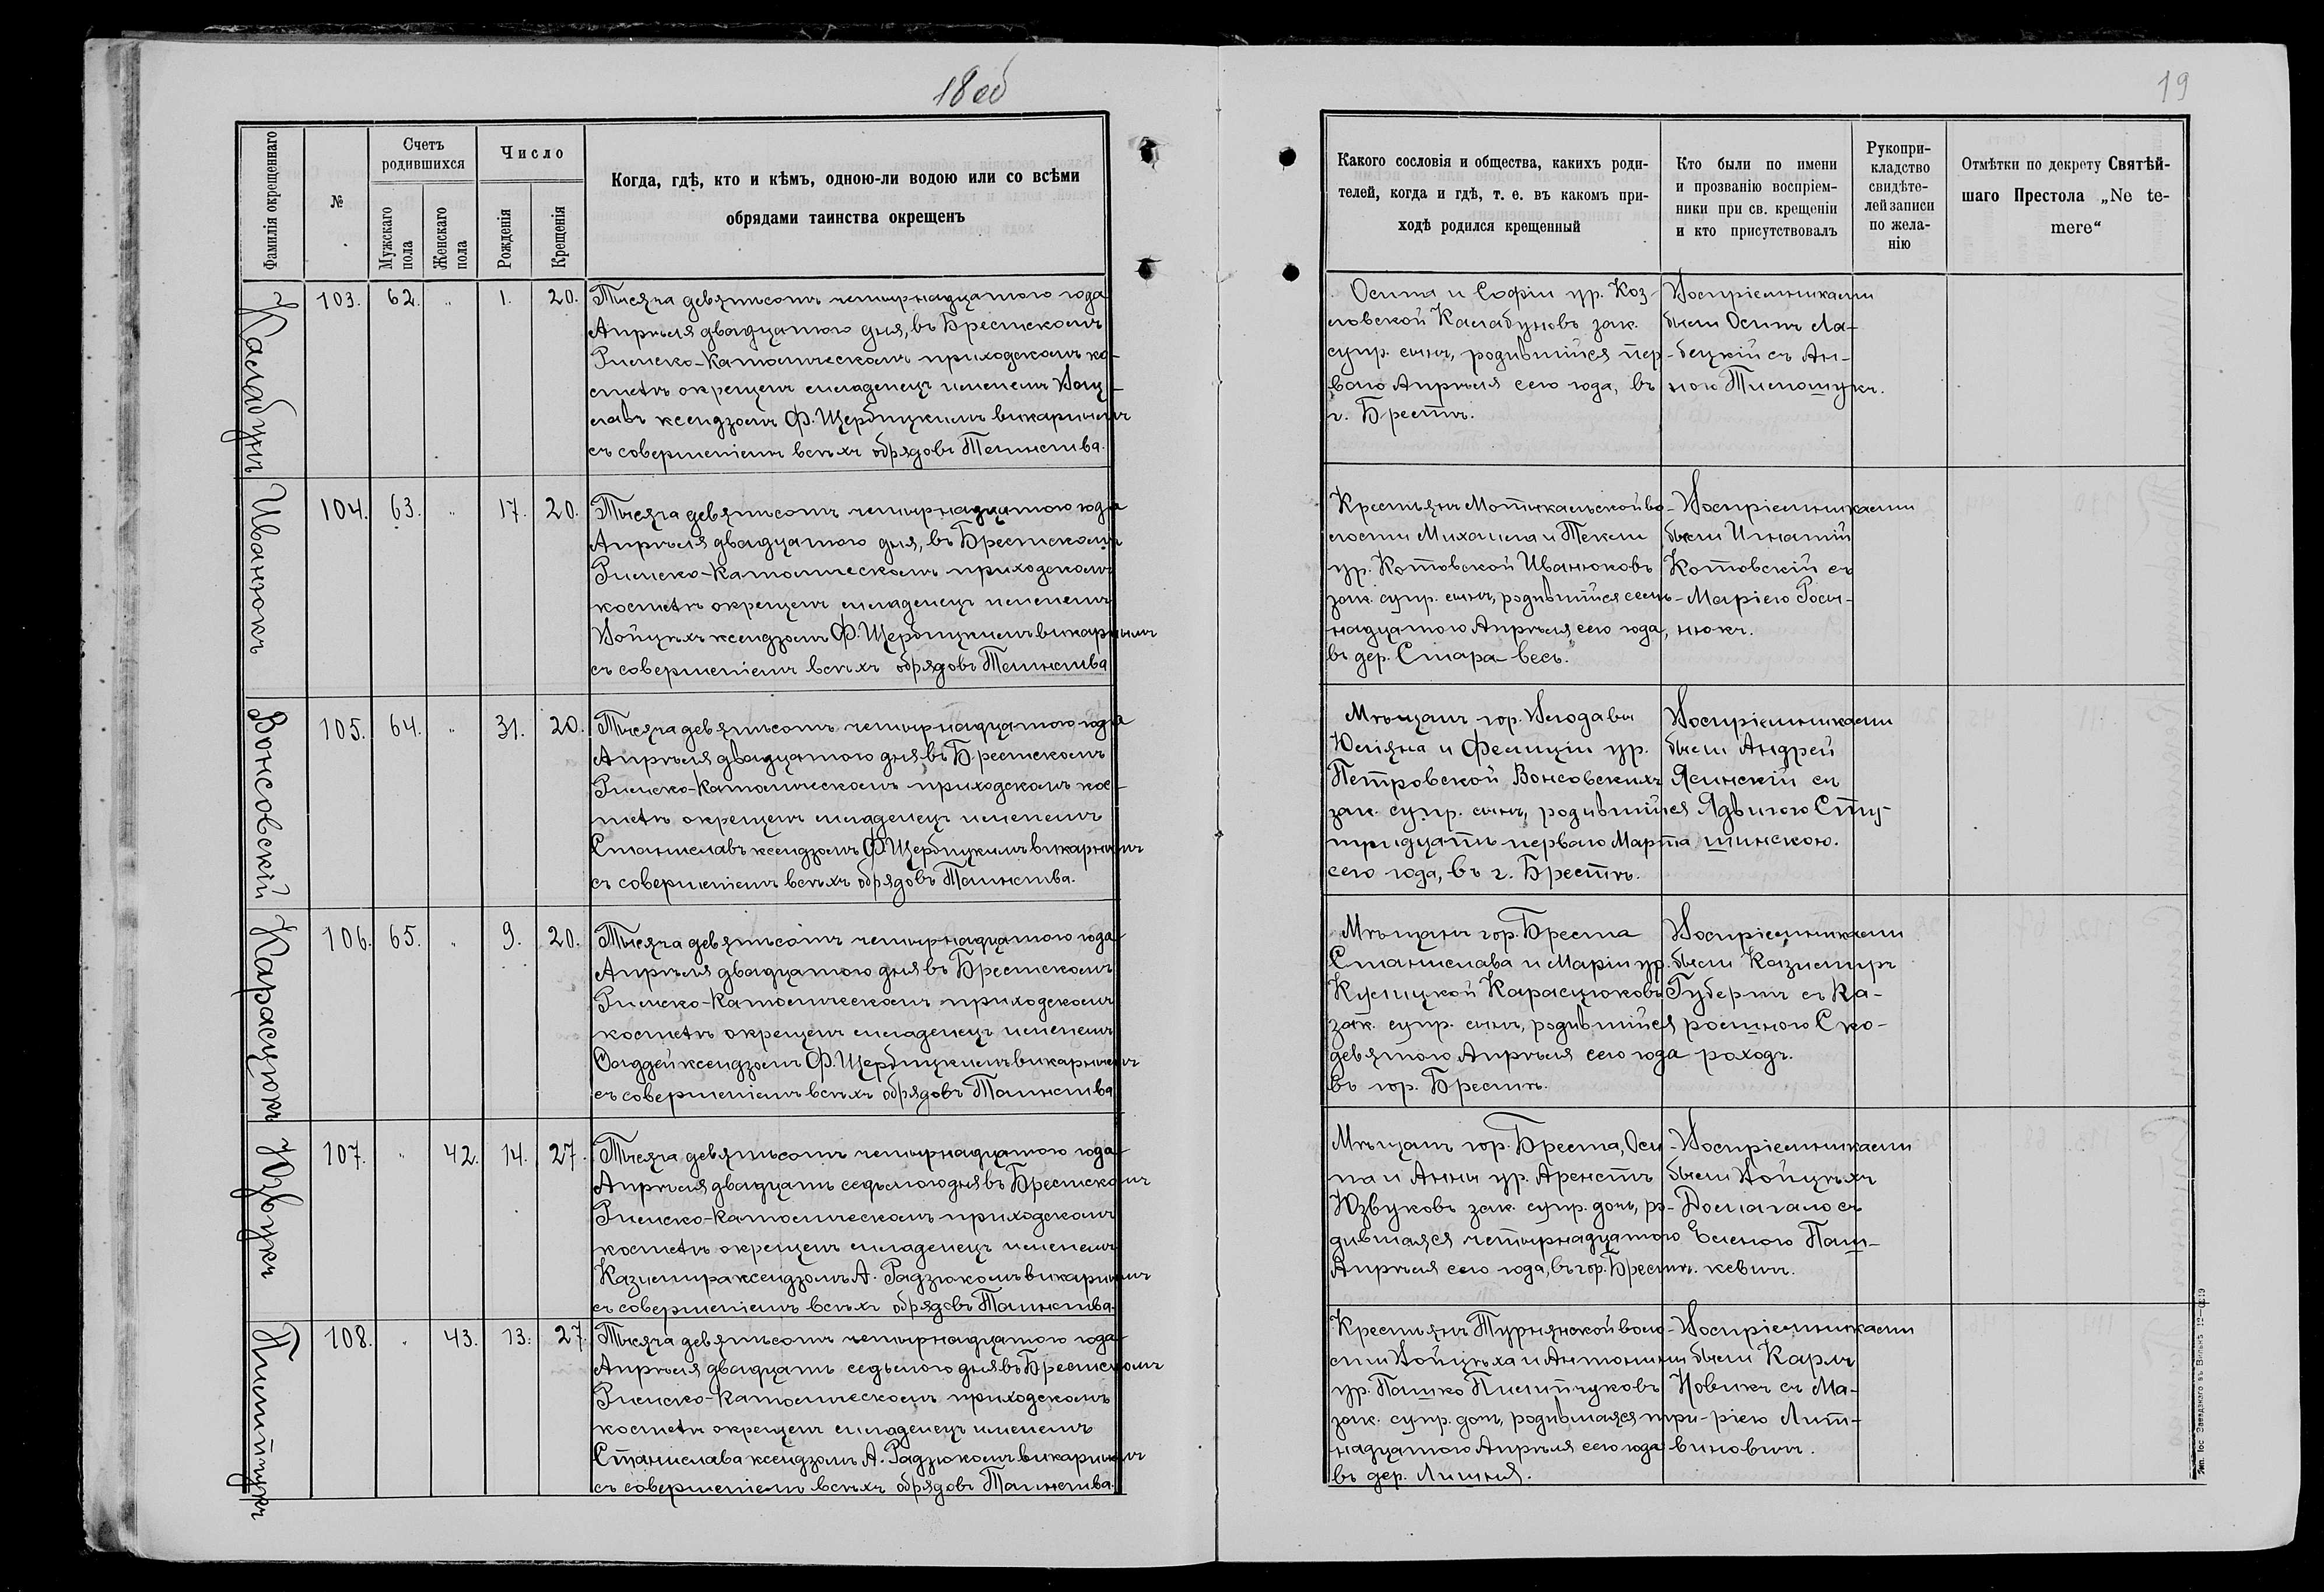 18 об
19
Фамилія окрещеннаго
№
Счетъ родившихся
Мужскаго пола
Женскаго пола
Число
Рожденія
Крещенія
Когда, гдѣ, кто и кѣмъ, одною-ли водою или со всѣми
обрядами таинства окрещенъ
Какого сословія и общества, какихъ роди-
телей, когда и гдѣ, т. е. въ какомъ при-
ходѣ родился крещенный
Кто были по имени
и прозванію воспріем-
ники при св. крещеніи
и кто присутствовалъ
Рукопри-
кладство
свидѣте-
лей записи
по жела-
нію
Отмѣтки по декрету Святѣй-
шаго Престола „Ne te-
mere“
Калабунъ
103. 62. " 1. 20.
Тысяча девятьсотъ четырнадцатого года
Апрѣля двадцатого дня, въ Брестскомъ
Римско-Католическомъ приходскомъ ко-
стелѣ окрещенъ младенецъ именемъ Вац-
лавъ ксендзомъ Ф. Щербицкимъ викарнымъ
съ совершеніемъ всѣхъ обрядовъ Таинства.
Осипа и Софіи ур. Коз-
ловской Калабуновъ зак.
супр. сынъ, родившійся пер-
вого Апрѣля сего года, въ
г. Брестѣ.
Воспріемниками
были Осипъ Ла-
бецкій съ Ан-
ною Тимошукъ.
Иванюкъ
104. 63. " 17. 20.
Тысяча девятьсотъ четырнадцатого года
Апрѣля двадцатого дня, въ Брестскомъ
Римско-Католическомъ приходскомъ
костелѣ окрещенъ младенецъ именемъ
Войцѣхъ ксендзомъ Ф. Щербицкимъ викарнымъ
съ совершеніемъ всѣхъ обрядовъ Таинства
Крестьянъ Мотыкальской во-
лости Михаила и Текли
ур. Котовской Иванюковъ
зак. супр. сынъ, родившійся семь-
надцатого Апрѣля сего года,
въ дер. Стара-весь.
Воспріемниками
были Игнатій
Котовскій съ
Маріею Роси-
нюкъ.
Вонсовскій
105. 64. " 31. 20.
Тысяча девятьсотъ четырнадцатого года
Апрѣля двадцатого дня въ Брестскомъ
Римско-Католическомъ приходскомъ кос-
телѣ окрещенъ младенецъ именемъ
Станиславъ ксендзомъ Ф. Щербицкимъ викарнымъ
съ совершеніемъ всѣхъ обрядовъ Таинства.
Мѣщанъ гор. Влодавы
Юліяна и Фелиціи ур.
Петровской Вонсовскихъ
зак. супр. сынъ, родившійся
тридцать первого Марта
сего года, въ г. Брестѣ.
Воспріемниками
были Андрей
Ясинскій съ
Ядвигою Сту-
шинскою.
Карасцюкъ
106. 65. " 9. 20.
Тысяча девятьсотъ четырнадцатого года
Апрѣля двадцатого дня въ Брестскомъ
Римско-Католическомъ приходскомъ
костелѣ окрещенъ младенецъ именемъ
Фаддей ксендзомъ Ф. Щербицкимъ викарнымъ
съ совершеніемъ всѣхъ обрядовъ Таинства
Мѣщанъ гор. Бреста
Станислава и Маріи ур.
Кулицкой Карасцюковъ
зак. супр. сынъ, родившійся
девятого Апрѣля сего года
въ гор. Брестѣ.
Воспріемниками
были Казимиръ
Губернъ съ Ка-
ролиною Ско-
роходъ.
Юзвукъ
107. " 42. 14. 27.
Тысяча девятьсотъ четырнадцатого года
Апрѣля двадцать седьмого дня въ Брестскомъ
Римско-Католическомъ приходскомъ
костелѣ окрещенъ младенецъ именемъ
Казимира ксендзомъ А. Радзюкомъ викарнымъ
съ совершеніемъ всѣхъ обрядовъ Таинства.
Мѣщанъ гор. Бреста, Оси-
па и Анны ур. Аренстъ
Юзвуковъ зак. супр. дочь, ро-
дившаяся четырнадцатого
Апрѣля сего года, въ гор. Брестѣ.
Воспріемниками
были Войцѣхъ
Домагало съ
Еленою Паш-
кевичъ.
Пилипчукъ
108. " 43. 13. 27.
Тысяча девятьсотъ четырнадцатого года
Апрѣля двадцать седьмого дня въ Брестскомъ
Римско-Католическомъ приходскомъ
костелѣ окрещенъ младенецъ именемъ
Станислава ксендзомъ А. Радзюкомъ викарнымъ
съ совершеніемъ всѣхъ обрядовъ Таинства.
Крестьянъ Турнянской воло-
сти Войцѣха и Антонины
ур. Пашко Пилипчуковъ
зак. супр. дочь, родившаяся три-
надцатого Апрѣля сего года
въ дер. Лишня.
Воспріемниками
были Карлъ
Новикъ съ Ма-
ріею Лит-
виновичъ.
Тип. Іос. Завадзкаго въ Вильнѣ